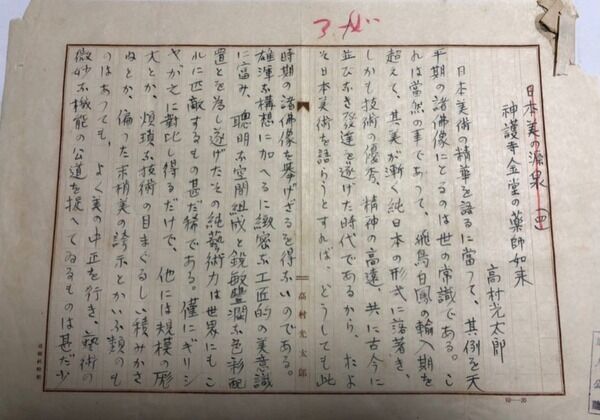 アガ
日本美の源泉（四）
神護寺金堂の薬師如来
高村光太郎
日本美術の精華を語るに当つて、其例を天
平期の諸佛像にとるのは世の常識である。こ
れは当然の事であつて、飛鳥白鳳の輸入期を
超えて、其美が漸く純日本の形式に落着き、
しかも技術の優秀、精神の高遠、共に古今に
並びなき発達を遂げた時代であるから、およ
そ日本美術を語らうとすれば、どうしても此
高村光太郎
時期の諸佛像を挙げざるを得ないのである。
雄渾な構想に加へるに緻密な工匠的の美意識
に富み、聡明な空間組成と鋭敏豊潤な色彩配
置とを為し遂げたその純藝術力は世界にもこ
れに匹敵するもの甚だ稀である。僅にギリシ
ヤが之に対比し得るだけで、他には規模の厖
大とか、煩瑣な技術の目まぐるしい積みかさ
ねとか、偏つた末梢美の誇示とかいふ類のも
のはあつても、よく美の中正を行き、藝術の
微妙な機能の公道を捉へてゐるものは甚だ少
10—20